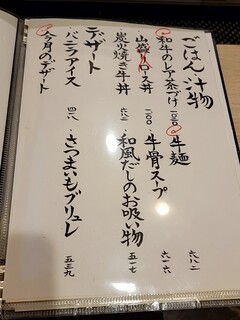 ごはん・汁物
・和牛のレア茶づけ 一〇三〇
・牛麺 六八二
山盛りロース丼 一二〇〇
・牛骨スープ 六一六
炭火焼き牛丼 六八二
・和風だしのお吸い物 五一七
デザート
・今月のデザート
・バニラアイス 四一八
・さつまいもブリュレ 五三九